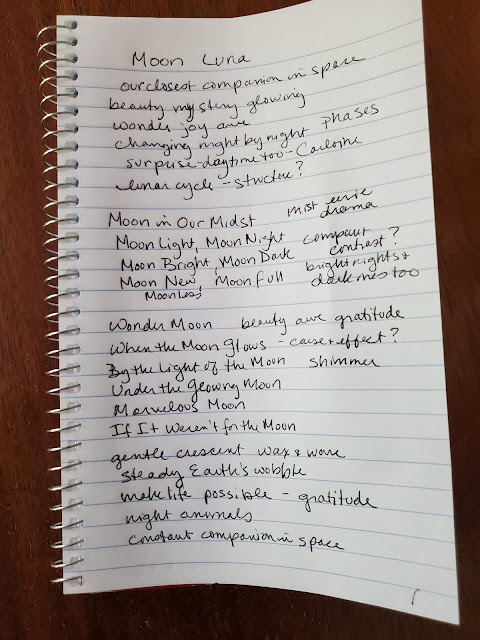 Moon Luna
our closest companion in space
beauty mystery glowing
wonder joy awe
changing night by night phases
surprise - daytime too - Caroline
lunar cycle - structure?
Moon in Our Midst mist eerie drama
Moon Light, Moon Night compare
Moon Bright, Moon Dark contrast?
Moon New, Moon Full bright nights +
Moonless darkness too
Wonder Moon beauty awe gratitude
When the Moon Glows - cause + effect?
By the Light of the Moon shimmer
Under the Glowing Moon
Marvelous Moon
If It Weren't for the Moon
gentle crescent wax + wane
steady Earth's wobble
make life possible - gratitude
night animals
constant companion in space